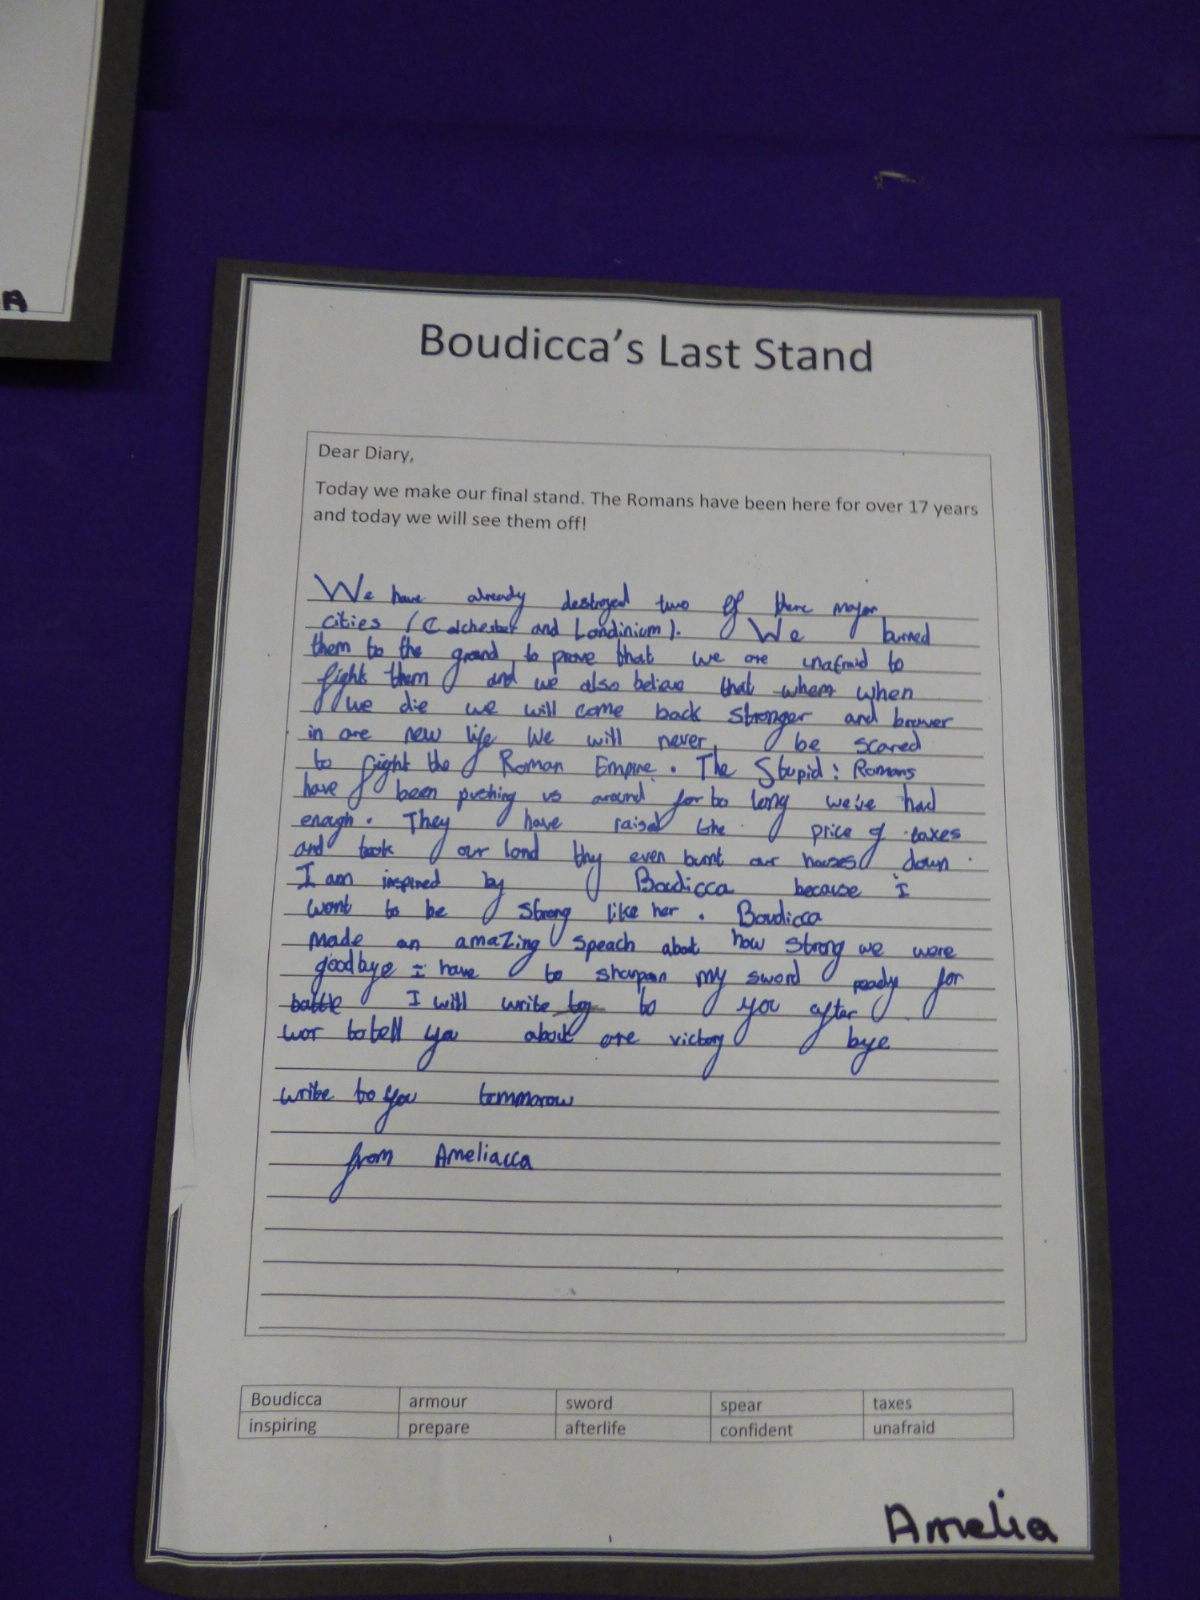 A
Boudicca's Last Stand
Dear Diary,
Today we make our final stand. The Romans have been here for over 17 years
and today we will see them off!
We have already destroyed two of there major
cities (Colchester and Londinium). We burned
them to the grond to prove that we are unafraid to
fight them and we also believe that whem when
we die we will come back stronger and braver
in are new life We will never be scared
to fight the Roman Empire. The Stupid: Romans
have been pushing us around for to long we've had
enagh. They have raised the price of taxes
and took our land thy even burnt our houses down.
I am inspired by Boudicca because I
wont to be strong like her. Boudicca
made an amaZing speach about how strong we were
goodbye I have to sharpan my sword ready for
battle I will write to you after
wor to tell you about are victory bye
write to you tommorow
from Ameliacca
Boudicca armour sword spear taxes
inspiring prepare afterlife confident unafraid
Amelia